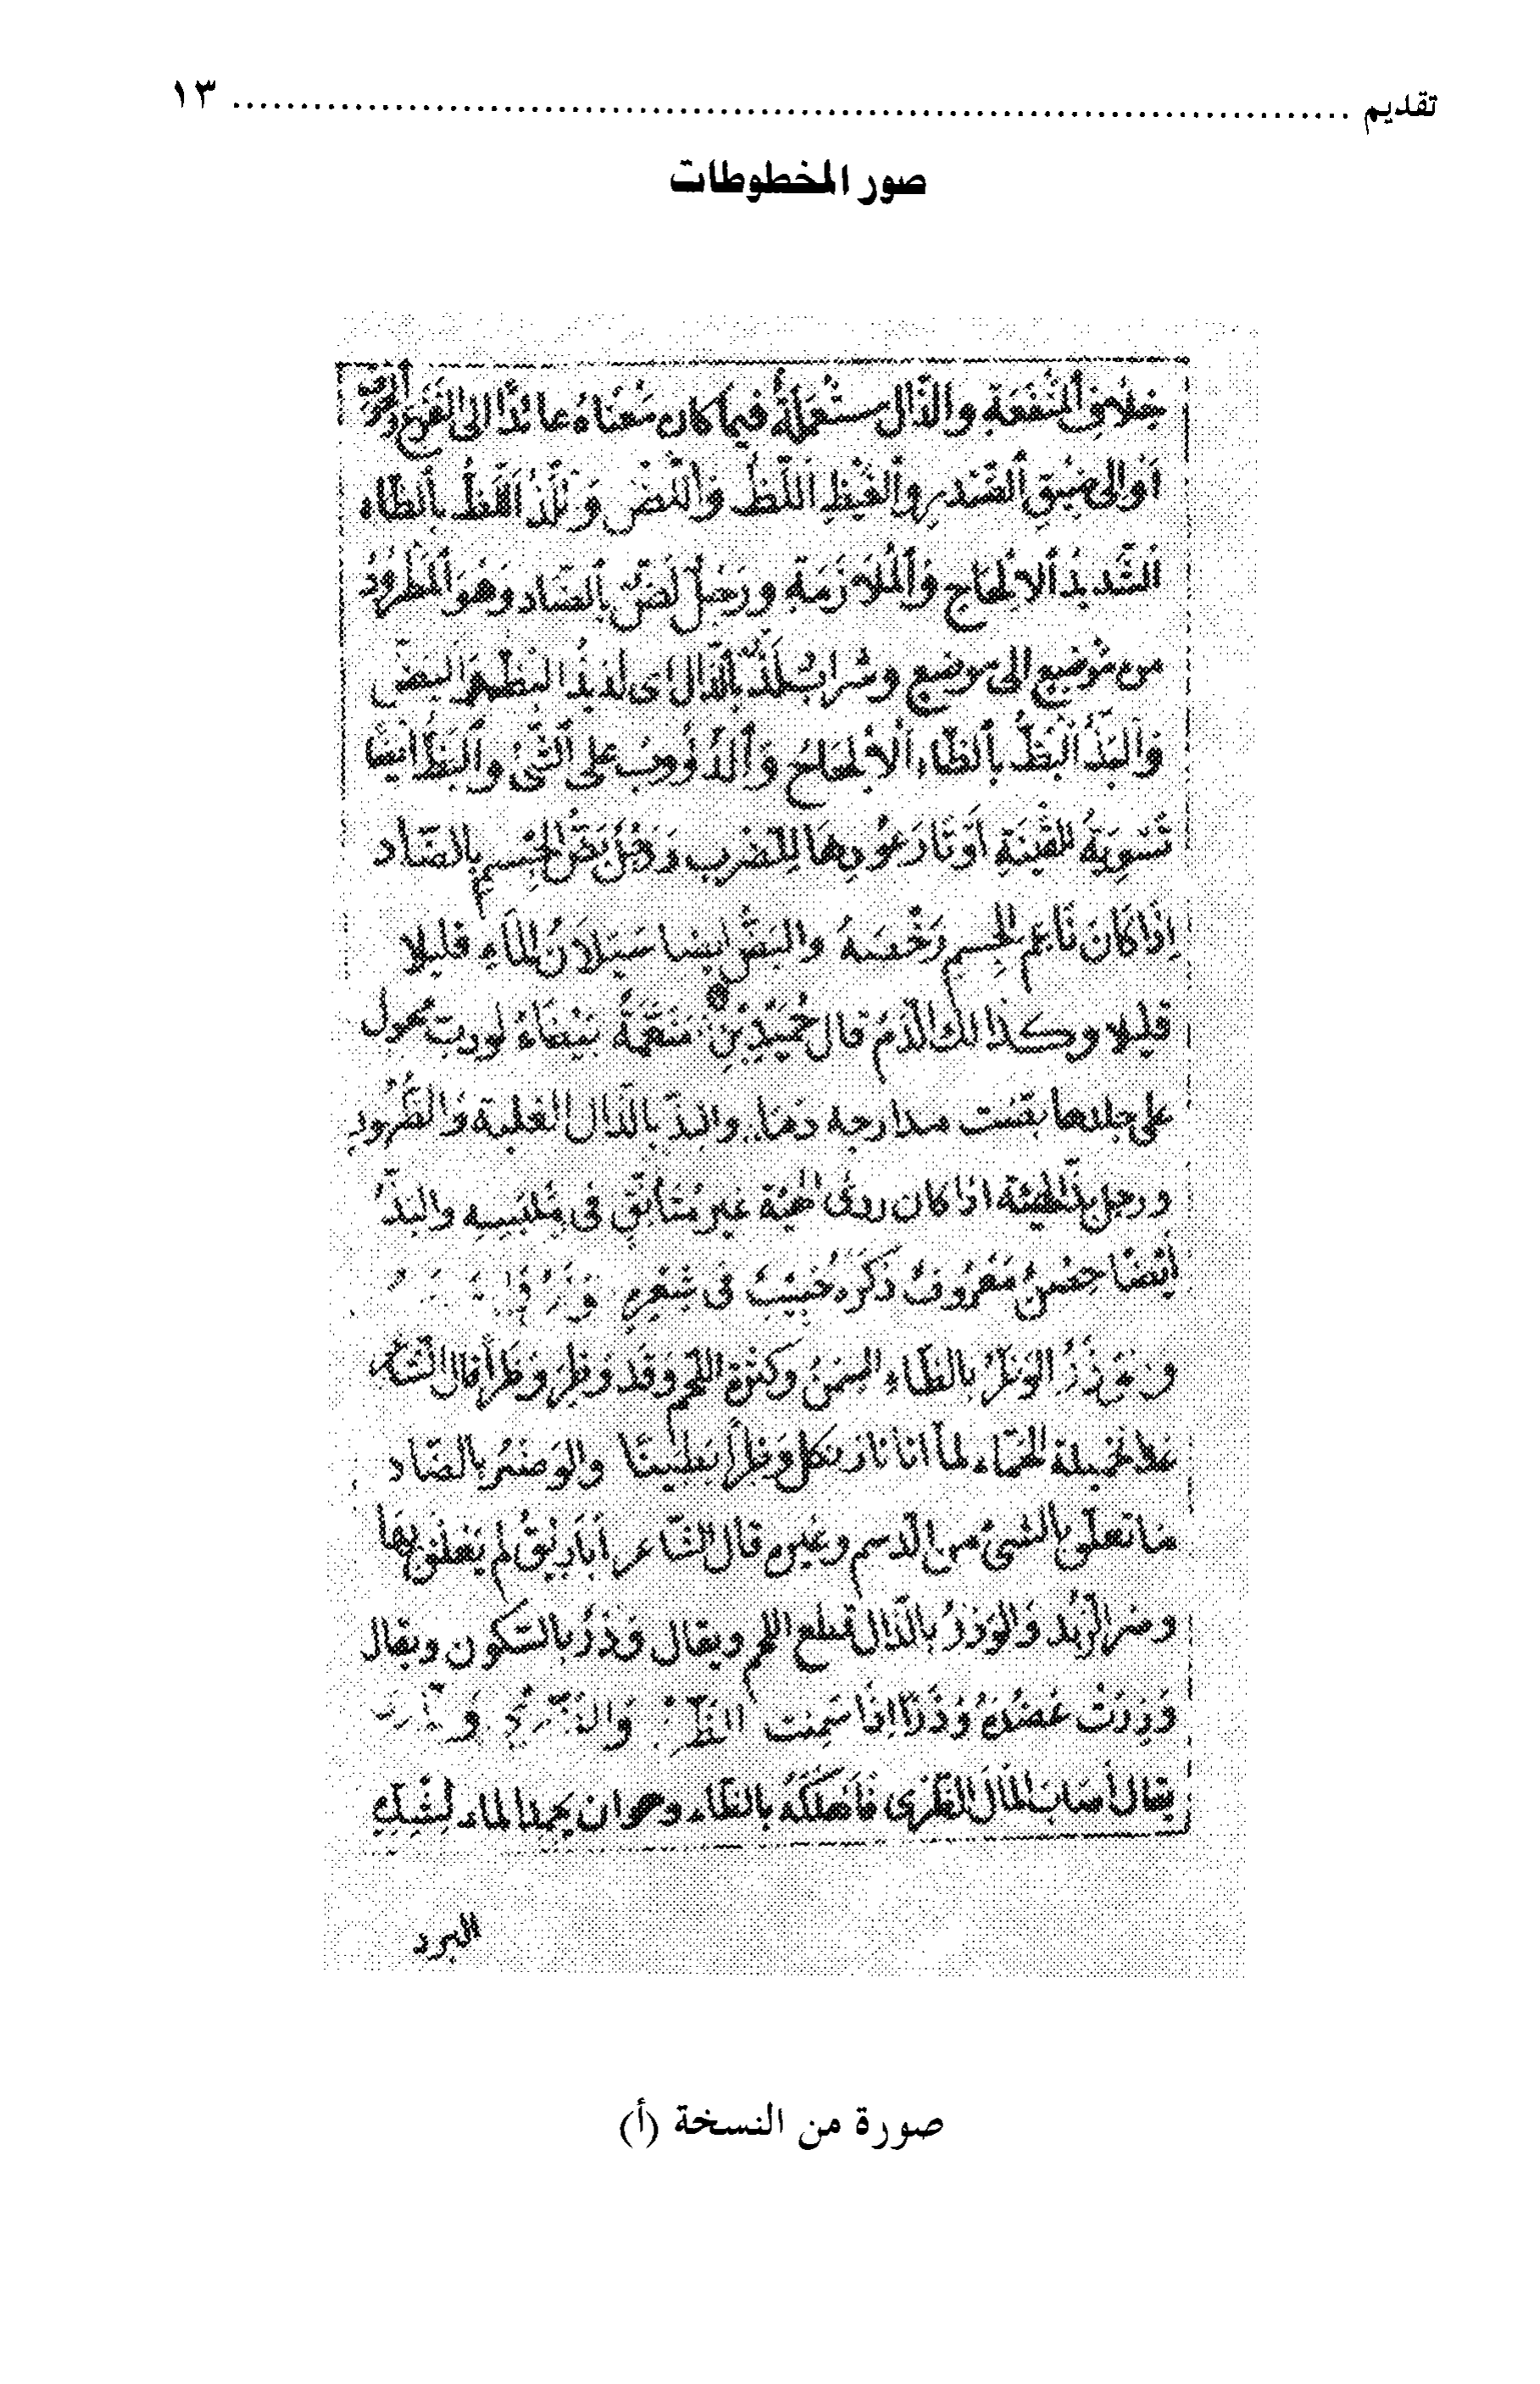 تقديم ........ ١٣
صور المخطوطات
بخلاف المنفعة والذال مستعملة فيما كان معناه عائدا الى
أو الى ضيق الصدر والغيظ اللظ واللض واللذ اللظ بالظاء
الشديد الالحاح والملازمة ورجل لض بالضاد وهو المطرود
من موضع الى موضع وشراب لذ بالذال اى لذيذ البظ والبض
والبذ البظ بالظاء الالحاح والدؤوب على الشىء والبظ ايضا
تسوية القينة أوتار عودها للضرب ورجل بض الجسم بالضاد
إذا كان ناعم الجسم رخصه والبض ايضا سيلان الماء قليلا
قليلا وكذالك الدم قال حميد منعمة بيضاء لو دب محول
على جلدها بضت مدارجه دما والبذ بالذال الغلبة والظهور
ورجل بذ الهيئة اذا كان ردىء الهيئة غير متأنق فى ملبسه والبذ
أيضا حصن معروف ذكره حبيب فى شعره
الوظر بالظاء السمن وكثرة اللحم وقد وظر وظرا قال الشاعر
لما انانا وظرا والوضر بالضاد
ما تعلق بالشىء من الدسم وغيره قال الشاعر أباريق لم يعلق بها
وضر الزبد والوذر بالذال قطع اللحم ويقال وذر بالسكون ويقال
وذرت عضده وذرا إذا سمنت
يقال أصاب المال الظرى فأهلكه بالظاء وهو ان يجمد الماء لشدة
البرد
صورة من النسخة (أ)